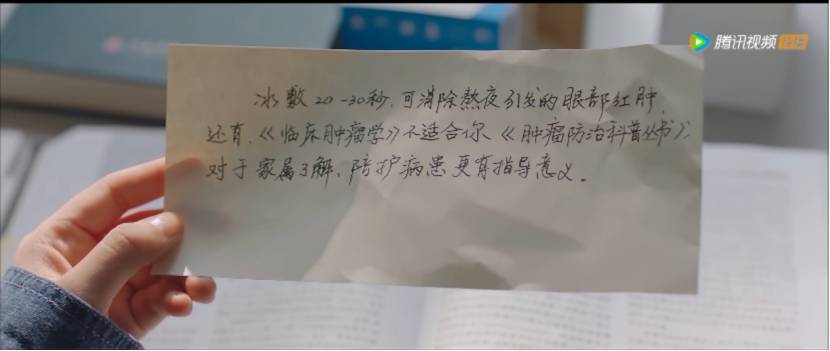 腾讯视频
冰敷20-30秒,可消除熬夜引发的眼部红肿,
还有,《临床肿瘤学》不适合你、《肿瘤防治科普丛书》,
对于家属了解、陪护病患更有指导意义。